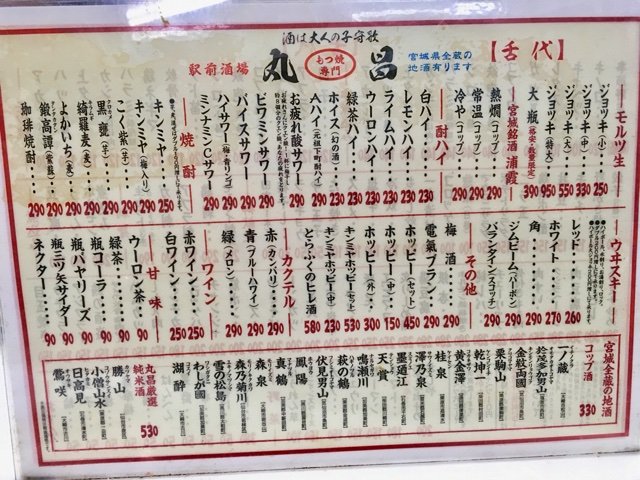 酒は大人の子守歌
駅前酒場
丸昌
もつ焼
専門
宮城県全蔵の
地酒有ります
【舌代】
―モルツ生―
ジョッキ(小)‥250
ジョッキ(中)‥330
ジョッキ(大)‥550
ジョッキ(特大)‥950
大瓶(格安・数量限定)390
―宮城銘酒 浦霞―
熱燗(コップ)‥290
常温(コップ)‥290
冷や(コップ)‥290
―酎ハイ―
白ハイ‥230
レモンハイ‥230
ライムハイ‥230
ウーロンハイ‥230
緑茶ハイ‥230
ホイス(幻の酒)‥
Aハイ(元祖下町酎ハイ)
お疲れ酸サワー
ビワミンサワー‥290
バイスサワー‥290
ハイサワー(梅・青リンゴ)290
ミンナミンCサワー‥290
―焼酎―
キンミヤ‥250
キンミヤ(梅入り)‥290
こく紫(芋)‥290
黒甕(芋)‥290
綺羅麦(麦)‥290
よかいち(麦)‥290
鍛高譚(紫蘇)‥290
珈琲焼酎‥290
―ウヰスキー―
レッド‥260
ホワイト‥270
角‥290
ジムビーム(バーボン)290
バランタイン(スコッチ)290
―その他―
梅酒‥290
電氣ブラン‥290
ホッピー(セット)450
ホッピー(中)‥150
ホッピー(外)‥300
キンミヤホッピー(中)230
キンミヤホッピー(セット)530
とらふくのヒレ酒 580
―カクテル―
赤(カンパリ)‥290
青(ブルーハワイ)290
緑(メロン)‥290
―ワイン―
赤ワイン‥250
白ワイン‥250
―甘味―
ウーロン茶‥90
緑茶‥90
瓶コーラ‥90
瓶バヤリーズ‥90
瓶三ツ矢サイダー 90
ネクター‥90
宮城全蔵の地酒
コップ酒 330
一ノ蔵
於茂多加男山
金紋両國
栗駒山
乾坤一
黄金澤
桂泉
澤乃泉
墨廼江
天賞
鳴瀬川
萩の鶴
伏見男山
鳳陽
真鶴
森泉
森乃菊川
雪の松島
わしが國
湖酔
丸昌厳選
純米酒 530
勝山
小僧山水
日高見
鶯咲